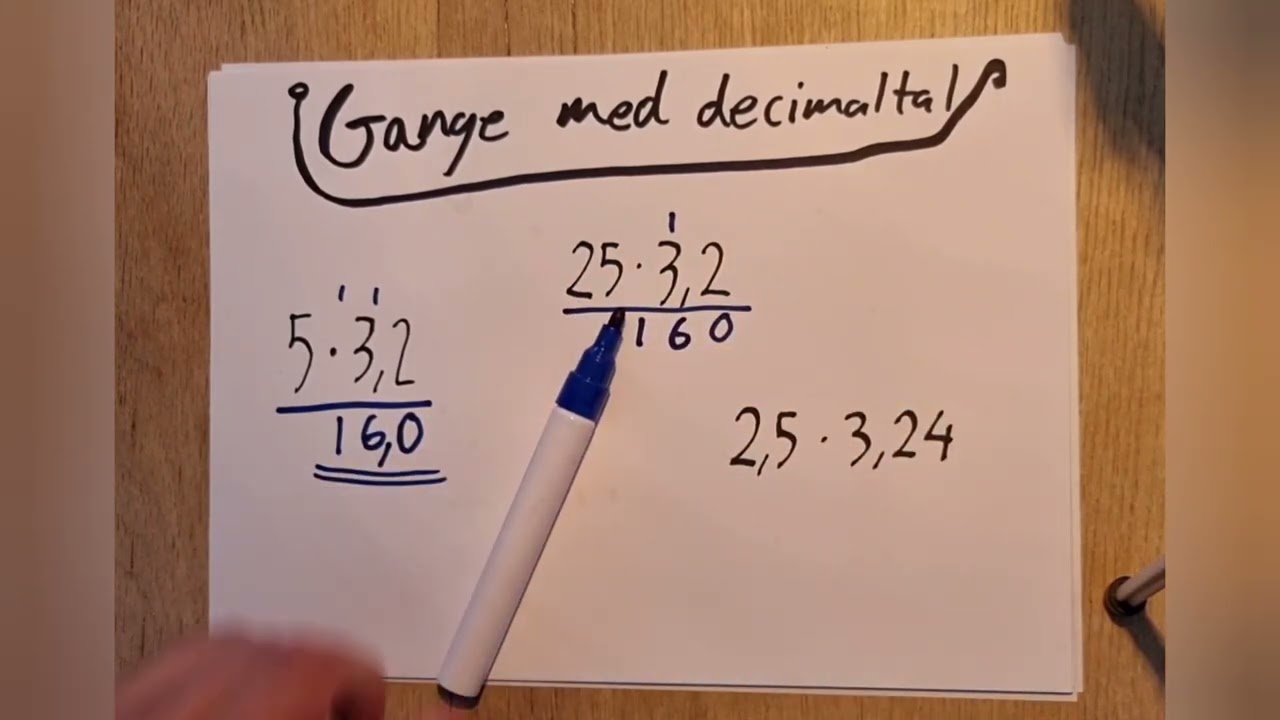 Gange med decimaltal
1 1
5 · 3,2
16,0
1
25 · 3,2
160
2,5 · 3,24